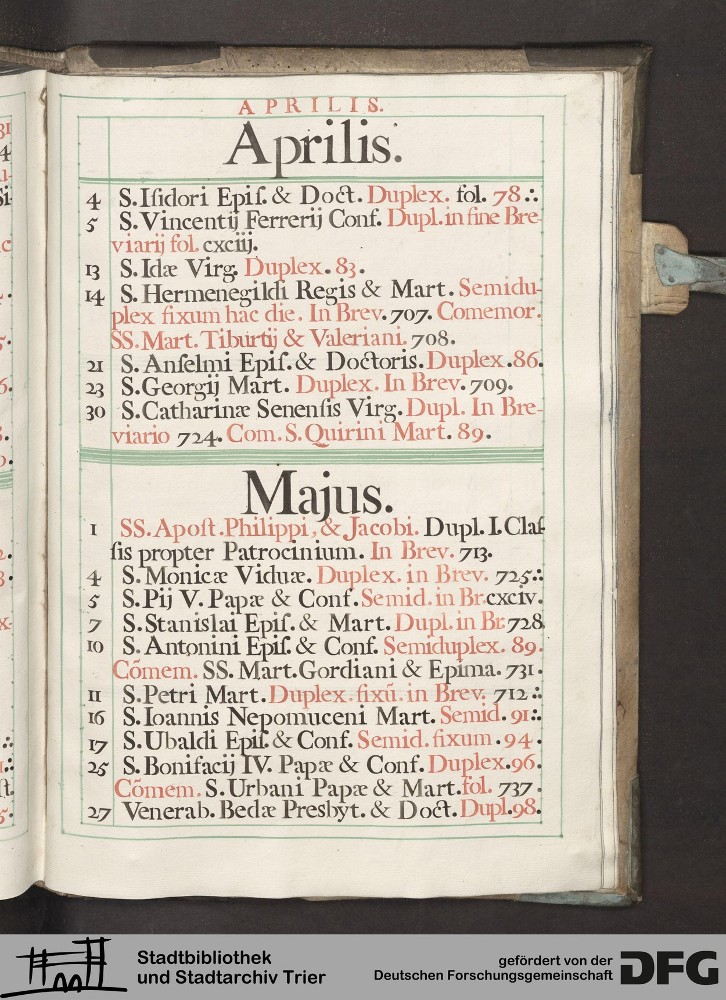 APRILIS.
Aprilis.
4 S. Iſidori Epiſ. & Doct. Duplex. fol. 78 ∴
5 S. Vincentij Ferrerij Conf. Dupl. in fine Bre-
viarij fol. cxciij.
13 S. Idæ Virg. Duplex. 83.
14 S. Hermenegildi Regis & Mart. Semidu-
plex fixum hac die. In Brev. 707. Comemor.
SS. Mart. Tiburtij & Valeriani. 708.
21 S. Anſelmi Epiſ. & Doctoris. Duplex. 86.
23 S. Georgij Mart. Duplex. In Brev. 709.
30 S. Catharinæ Senenſis Virg. Dupl. In Bre-
viario 724. Com. S. Quirini Mart. 89.
Majus.
1 SS. Apoſt. Philippi, & Jacobi. Dupl. I. Claſ-
ſis propter Patrocinium. In Brev. 713.
4 S. Monicæ Viduæ. Duplex. in Brev. 725 ∴
5 S. Pij V. Papæ & Conf. Semid. in Br. cxciv.
7 S. Stanislai Epiſ. & Mart. Dupl. in Br. 728
10 S. Antonini Epiſ. & Conf. Semiduplex. 89.
Cõmem. SS. Mart. Gordiani & Epima. 731.
11 S. Petri Mart. Duplex. fixũ. in Brev. 712 ∴
16 S. Ioannis Nepomuceni Mart. Semid. 91 ∴
17 S. Ubaldi Epiſ. & Conf. Semid. fixum. 94.
25 S. Bonifacij IV. Papæ & Conf. Duplex. 96.
Cõmem. S. Urbani Papæ & Mart. fol. 737.
27 Venerab. Bedæ Presbyt. & Doct. Dupl. 98.
Stadtbibliothek
und Stadtarchiv Trier
gefördert von der
Deutschen Forschungsgemeinschaft
DFG